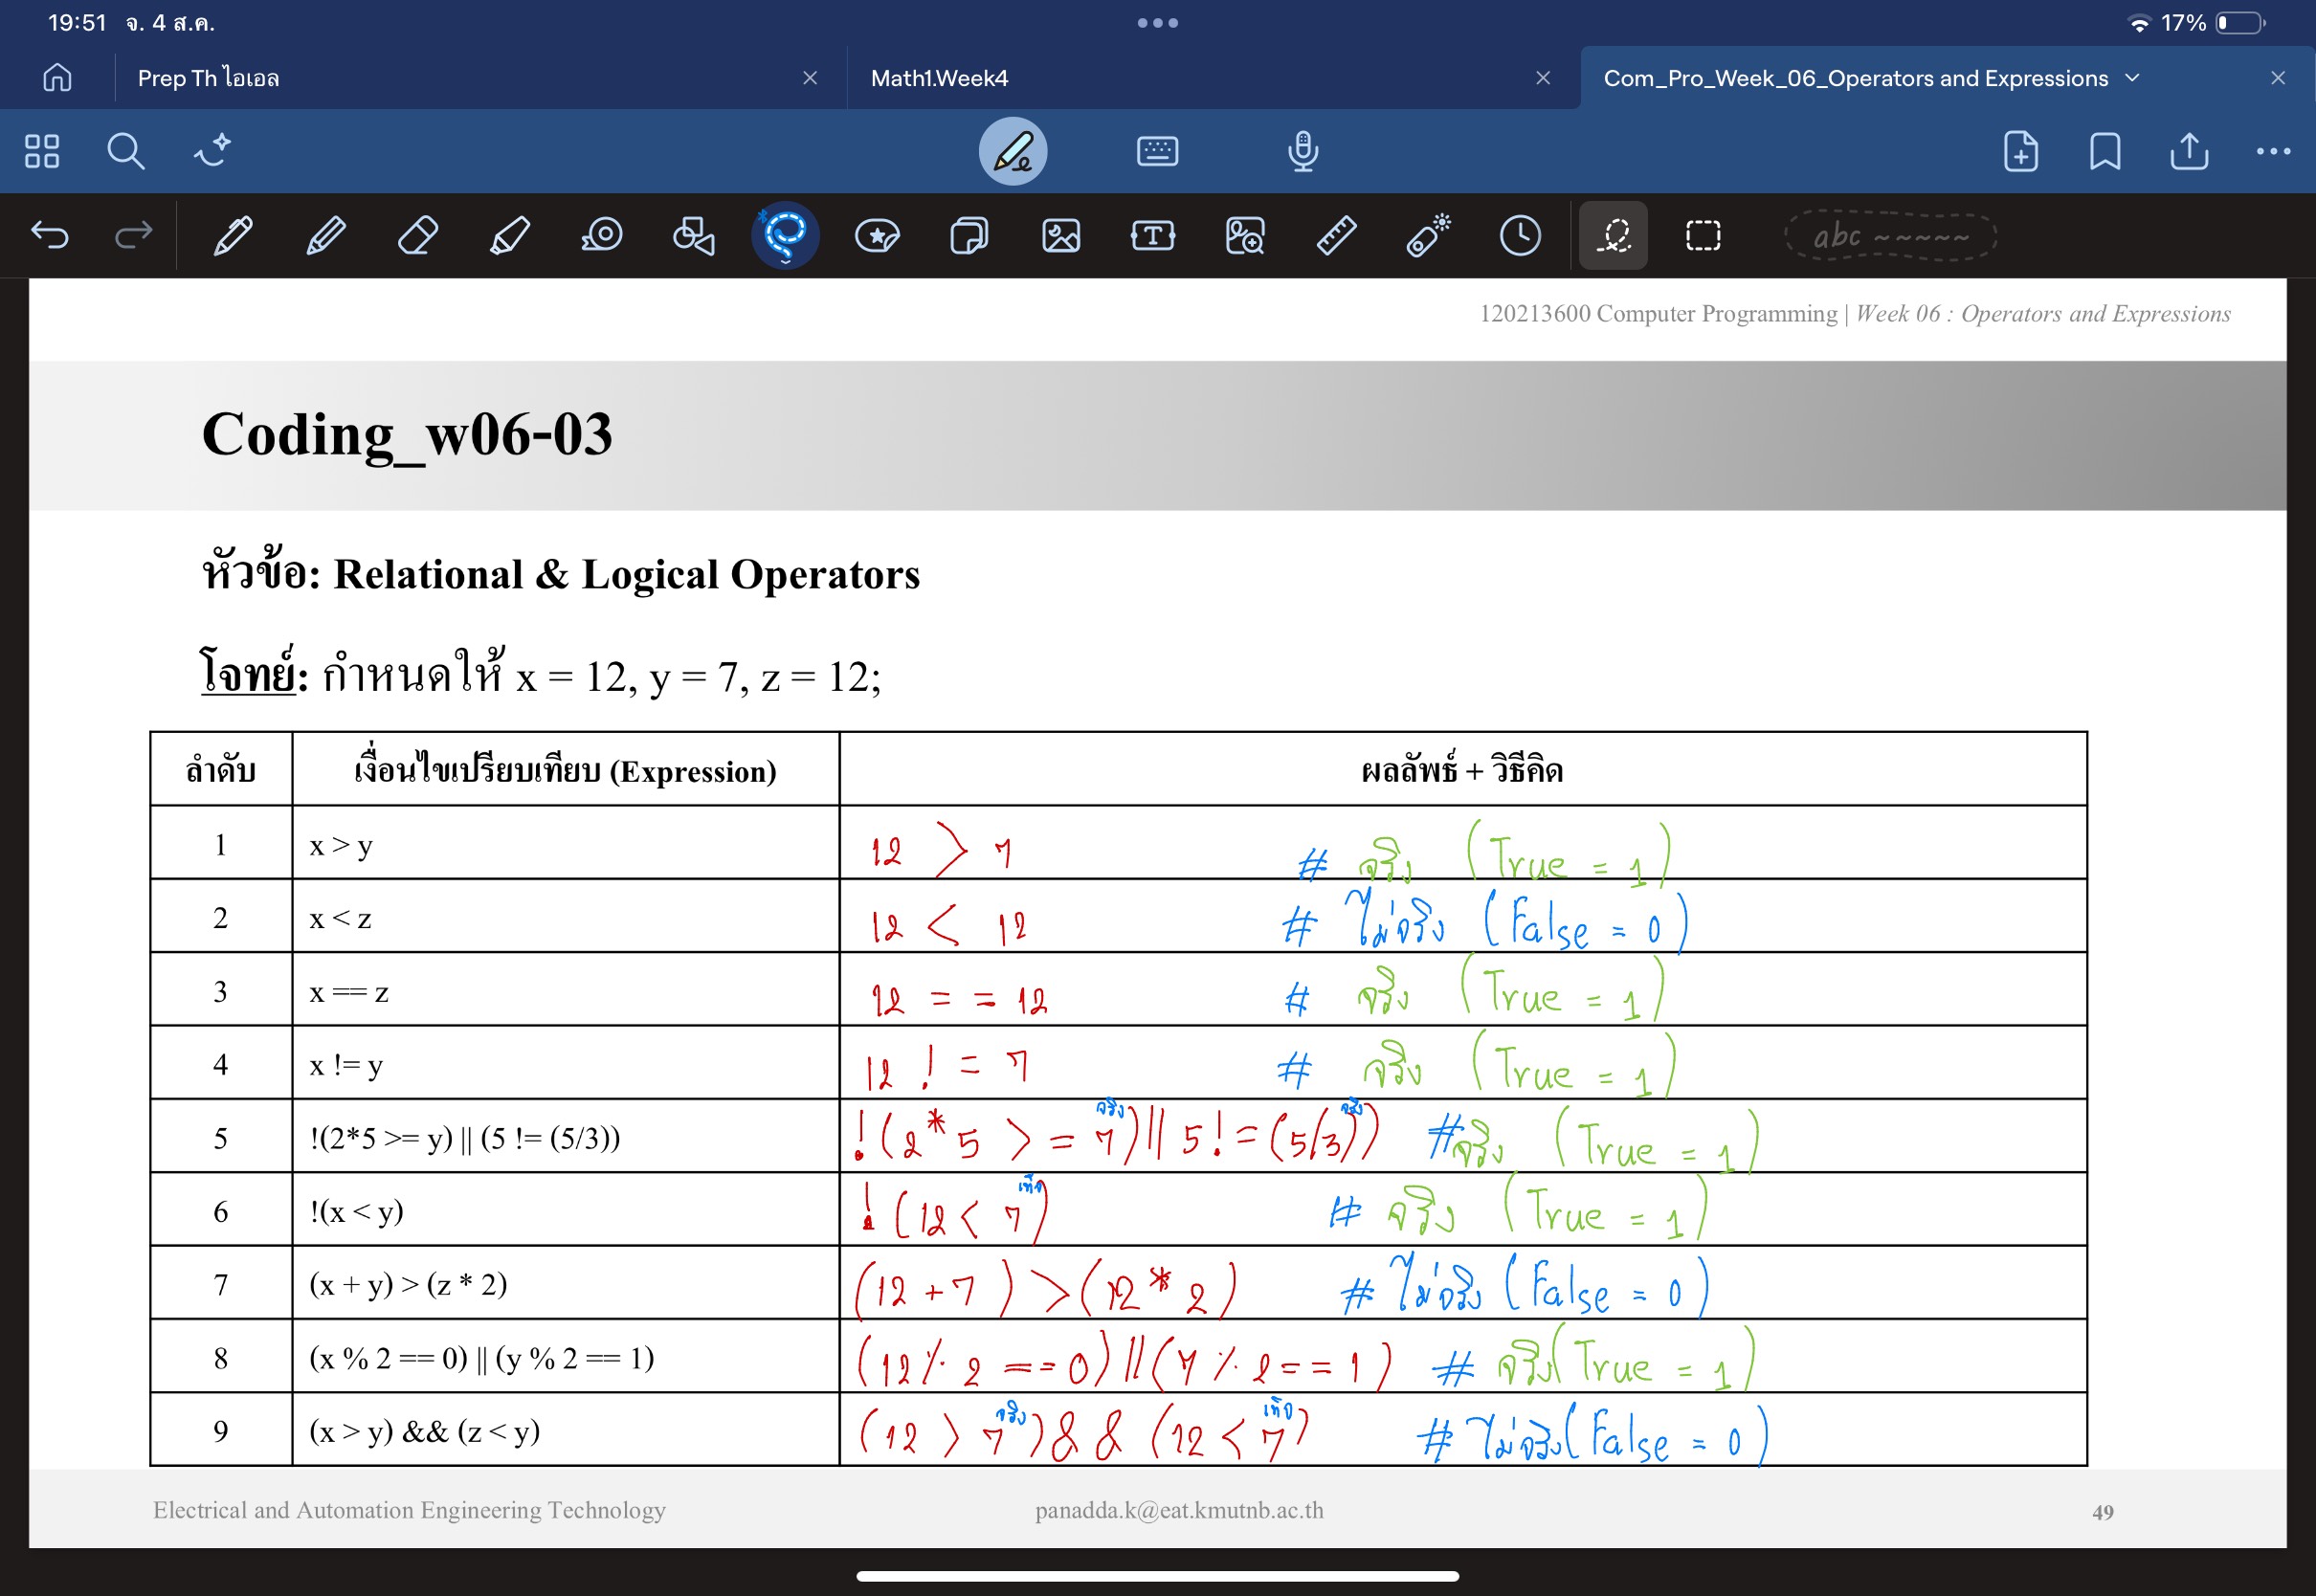 19:51 จ. 4 ส.ค. 17%
Prep Th ไอเอล Math1.Week4 Com_Pro_Week_06_Operators and Expressions
abc ~~~~~
120213600 Computer Programming | Week 06 : Operators and Expressions
Coding_w06-03
หัวข้อ: Relational & Logical Operators
โจทย์: กำหนดให้ x = 12, y = 7, z = 12;
ลำดับ เงื่อนไขเปรียบเทียบ (Expression) ผลลัพธ์ + วิธีคิด
1 x > y 12 > 7 # จริง (True = 1)
2 x < z 12 < 12 # ไม่จริง (False = 0)
3 x == z 12 == 12 # จริง (True = 1)
4 x != y 12 != 7 # จริง (True = 1)
จริง จริง
5 !(2*5 >= y) || (5 != (5/3)) !(2*5 >= 7) || 5!=(5/3)) # จริง (True = 1)
เท็จ
6 !(x < y) !(12 < 7) # จริง (True = 1)
7 (x + y) > (z * 2) (12 + 7) > (12 * 2) # ไม่จริง (False = 0)
8 (x % 2 == 0) || (y % 2 == 1) (12 % 2 == 0) || (7 % 2 == 1) # จริง (True = 1)
จริง เท็จ
9 (x > y) && (z < y) (12 > 7) && (12 < 7) # ไม่จริง (False = 0)
Electrical and Automation Engineering Technology panadda.k@eat.kmutnb.ac.th 49